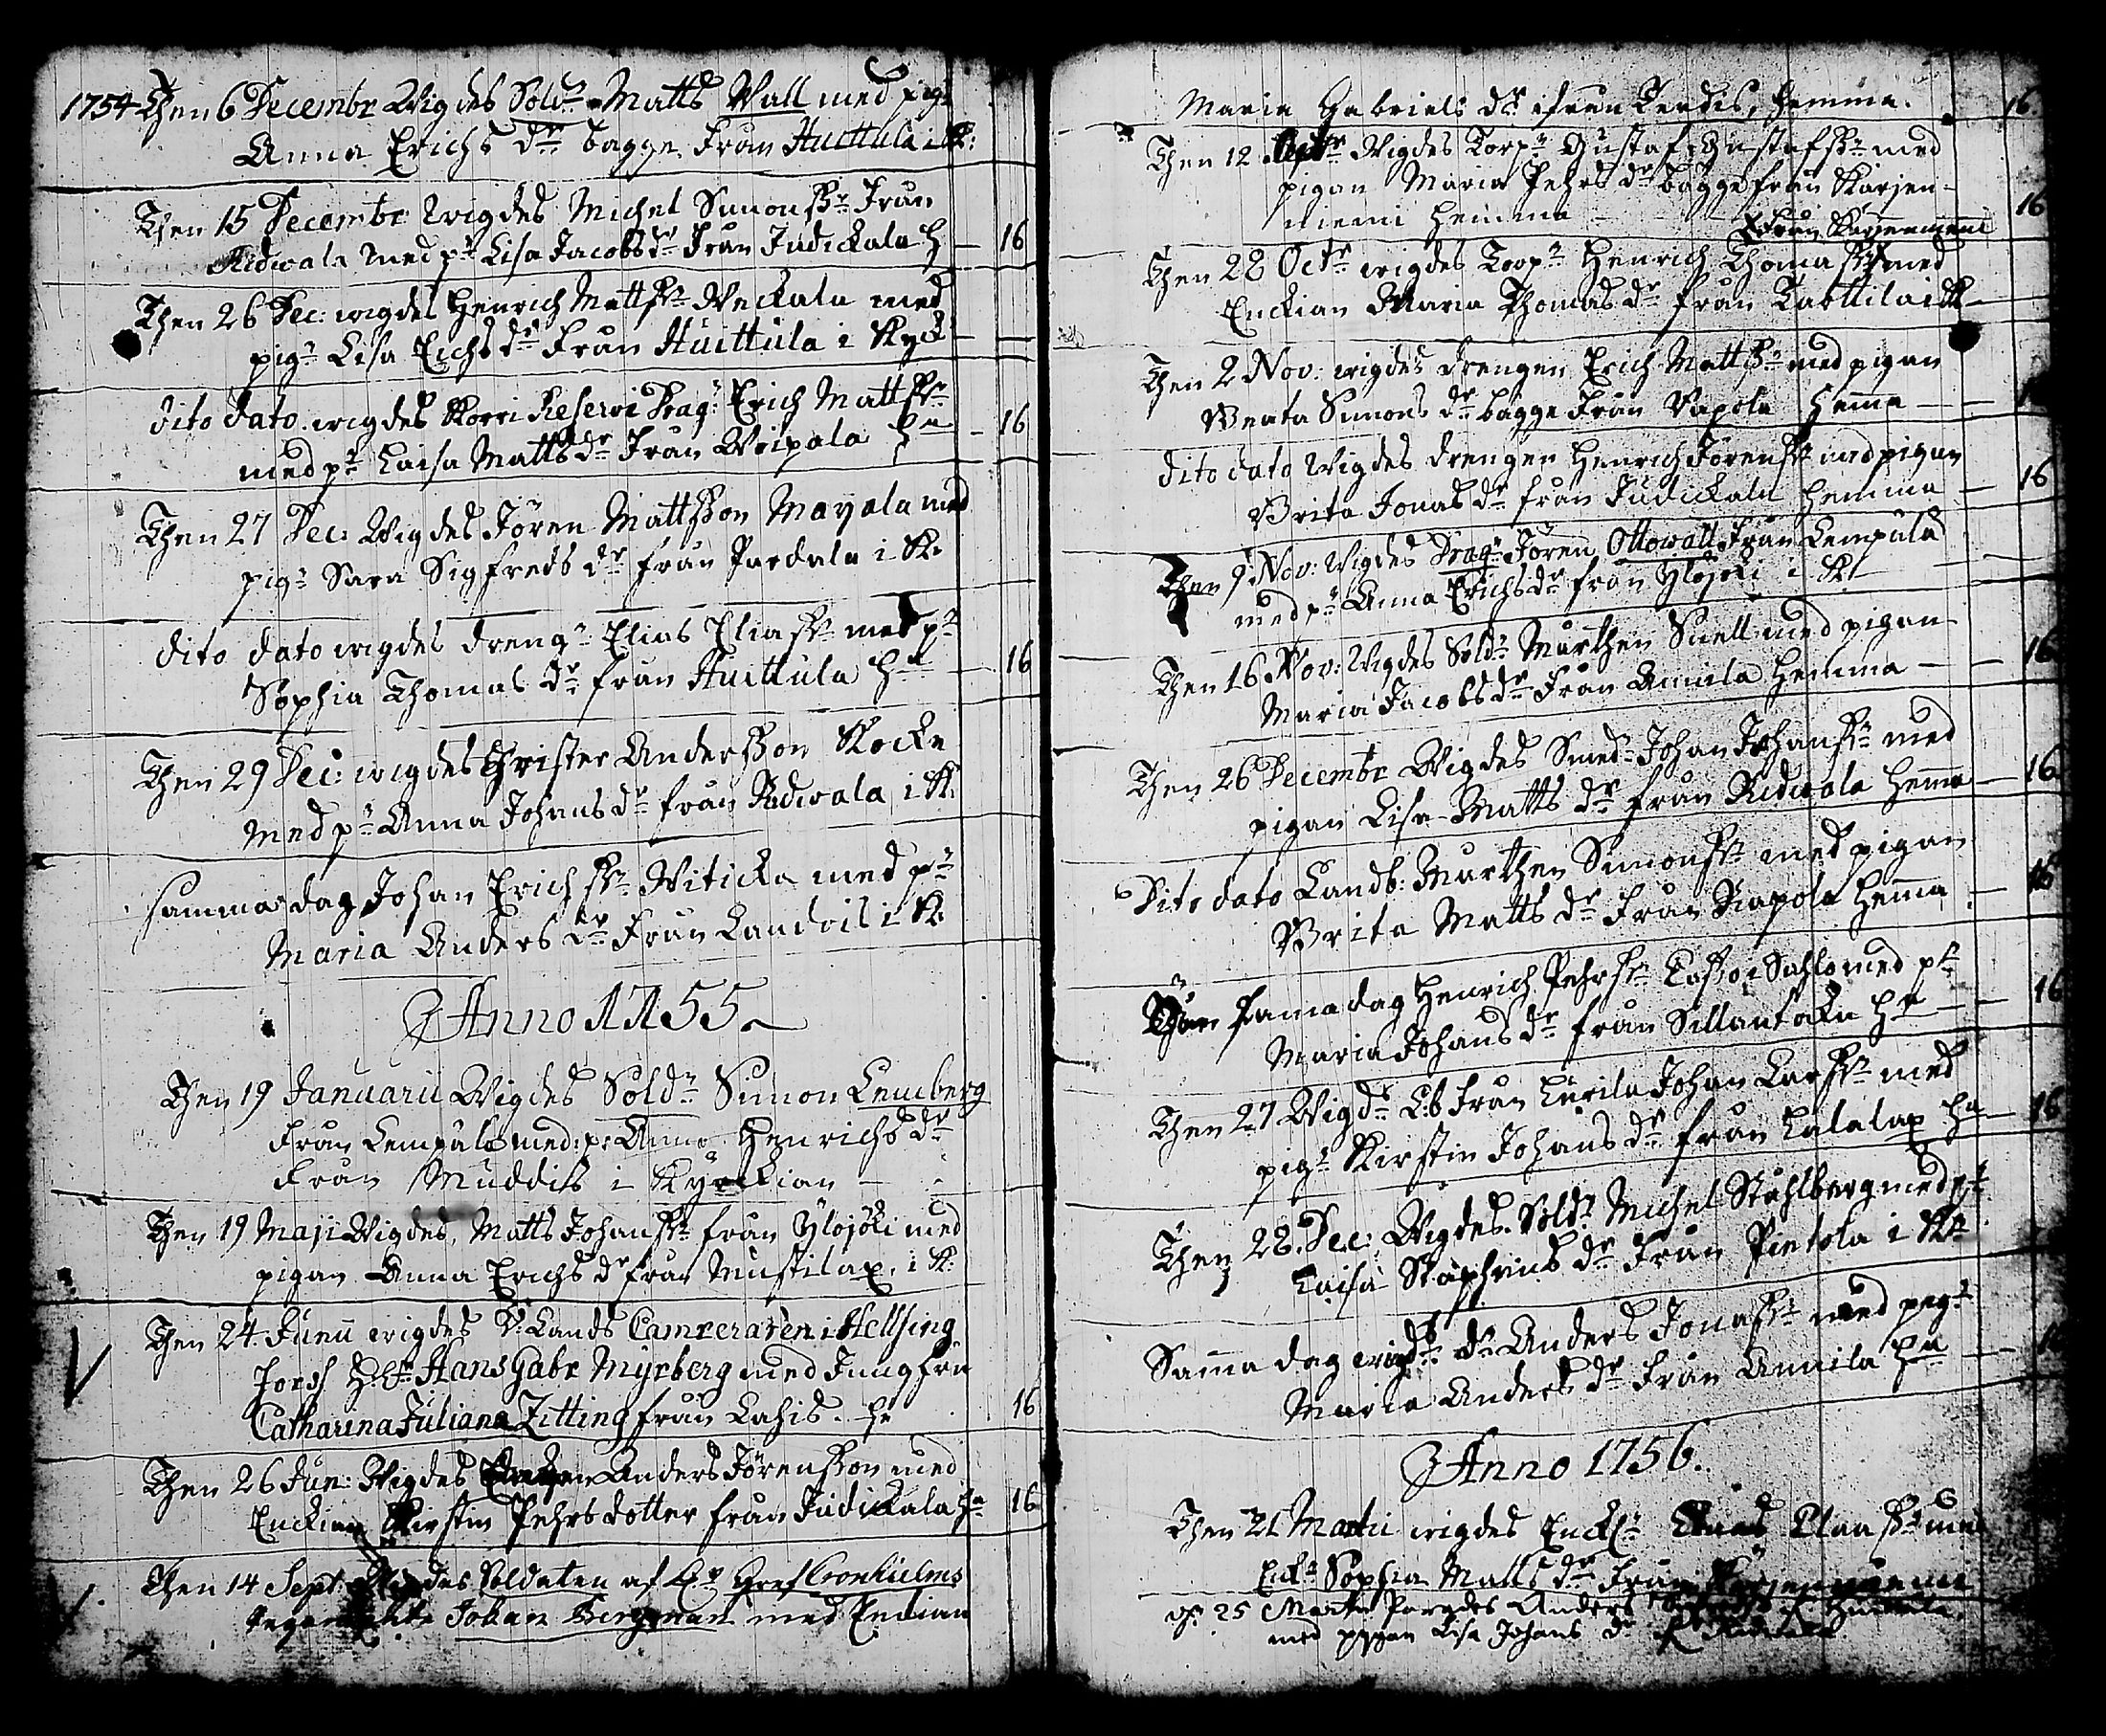 1754 Then 6 Decembr Wigdes Sold:n Matts Wall med pig:
Anna Erichs d:r bägge från Huittula i K:
Then 15 Decembr: Wigdes Michel Simonss:n Från
Ridwala med p: Lisa Jacobs d:r Från Judickala h — 16
Then 26 Dec: wigdes Henrich Mattss:n Weckala med
pig: Lisa Erichs d:r Från Huittula i Kyck
dito dato wigdes Korri Reserve Drag: Erich Mattss:n
med p: Caisa Matts d:r Från Woipala h:a — 16
Then 27 Dec: Wigdes Jören Mattsson Mayala med
pig: Sara Sigfreds d:r från Pardala i K:
dito dato wigdes dreng: Elias Eliass:n med p:
Sophia Thomas d:r från Huittula h:a — 16
Then 29 Dec: wigdes Christer Andersson Kocke
med p: Anna Johans d:r från Ridwala i K:
samma dag Johan Erichss:n Witicka med p:
Maria Anders d:r Från Laudois i K:
Anno 1755
Then 19 Januarii Wigdes Sold:n Simon Lemberg
Från Lempälä med: p: Anna Henrichs d:r
Från Muddis i Kyrckian —
Then 19 Maji Wigdes, Matts Johanss:n från Ylojöki med
pigan Anna Erichs d:r från Mustilax, i K:
Then 24 Junii wigdes V: Lands Camreraren i Helsing
fors H:r Hans Gabr Myrberg med Jungfru
Catharina Juliana Zitting från Lahis. h:a 16
Then 26 Jun: Wigdes Anders Jörensson med
Enckian Kirstin Pehrs dotter från Judickala h:a 16
Then 14 Sept: Wigdes Soldaten af Gref Cronhielms
Johan Bergman med Enckian
Maria Gabriels d:r ifrån Terdis, hemma. 16
Then 12 Wigdes Torp:n Gustaf Gustafss:n med
pigan Maria Pehrs d:r bägge från Karjen-
niemi hemma — 16
från Karjenniemi
Then 22 Oct:r wigdes Torp:n Henrich Thomass:n med
Enckian Maria Thomas d:r från Carttila i K
Then 2 Nov: wigdes drengen Erich Mattss:n med pigan
Beata Simons d:r bägge från Rapola hema —
dito dato Wigdes drengen Henrich Jörenss:n med pigan
Brita Jonas d:r från Judickala hemma — 16
Then 9 Nov: Wigdes Drag: Jören Ottowall från Lempälä
med p: Anna Erichs d:r från Ylöjoki i K:
Then 16 Nov: Wigdes Sold: Mårthen Snell med pigan
Maria Jacobs d:r Från Annila hemma — 16
Then 26 Decembr Wigdes Smed: Johan Johanss:n med
pigan Lisa Matts d:r från Ridwala hema — 16
Dito dato Landb: Mårthen Simonss:n med pigan
Brita Matts d:r från Rapola hema — 16
samadag Henrich Pehrss:n Sahlo med p:
Maria Johans d:r från Sillantaka h:a — 16
Then 27 Wigd:s Lb från Kurila Johan Larss:n med
pig: Kirstin Johans d:r från Lalalax h:a — 16
Then 28 Dec: Wigdes Sold: Michel Ståhlberg med p:
Caisa Staphens d:r Från Pintola i K:
Sama dag wigd:s Anders Jonass:n med pig:
Maria Anders d:r Från Annila h:a —
Anno 1756.
Then 21 Martii wigdes Enckl: Claas Claass:n med
Enk: Sophia Matts d:r Från Karjenniemi
25 Martii Wigdes Anders Huittula
med pigan Lisa Johans d:r Ridwala